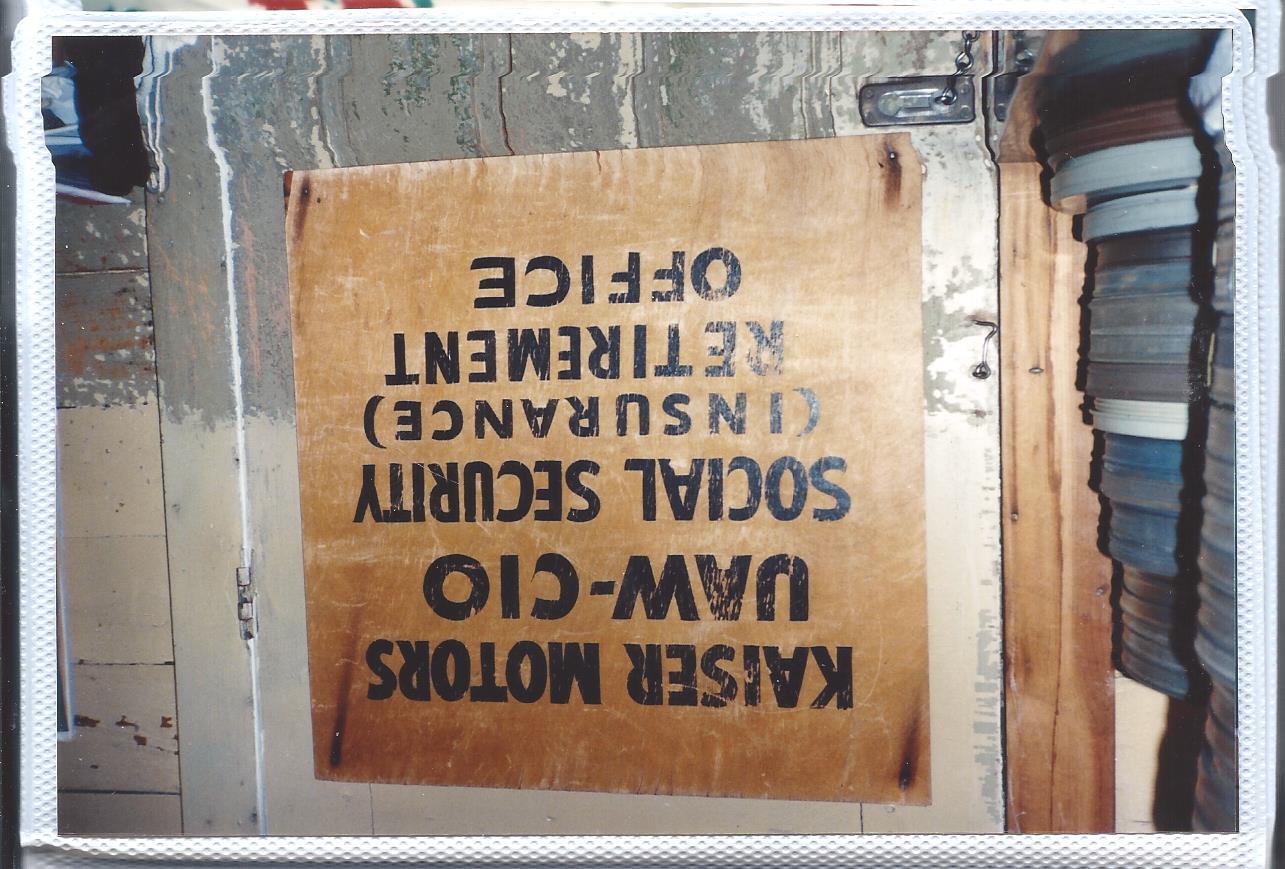 KAISER MOTORS
UAW-CIO
SOCIAL SECURITY
(INSURANCE)
RETIREMENT
OFFICE